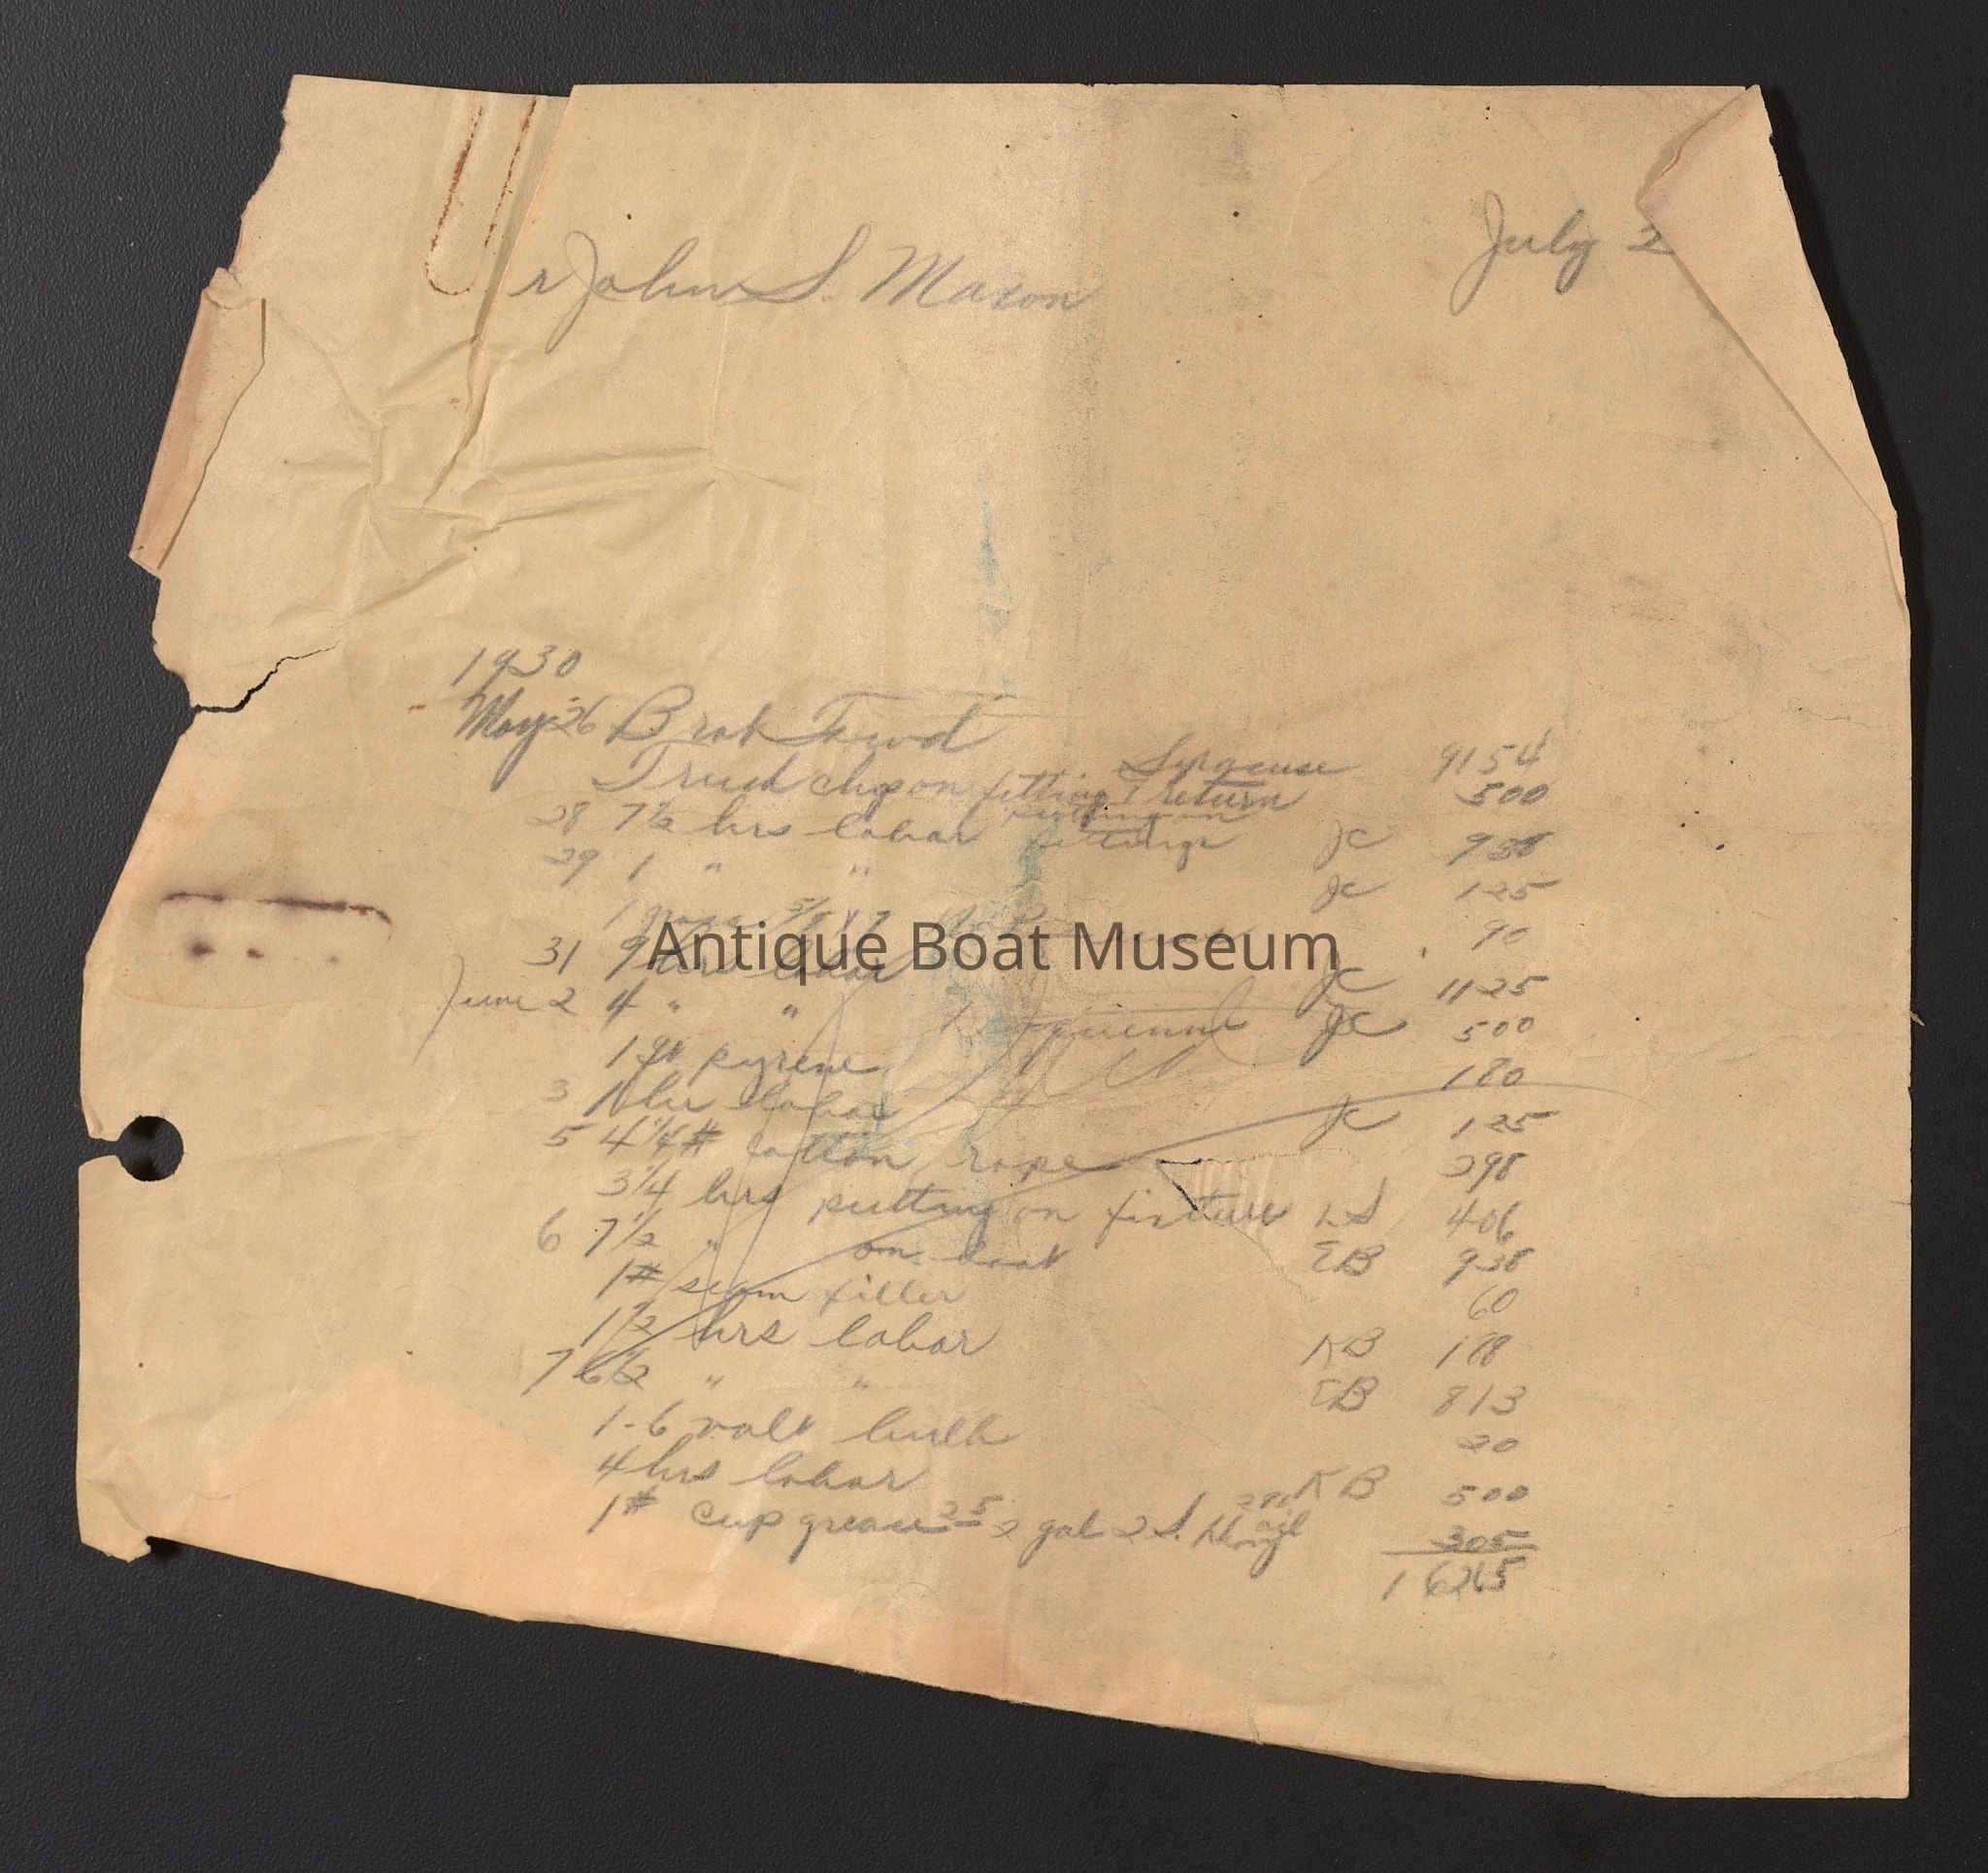 July 2
r John S. Mason
1930
May 26 Brot Forwd 9154
Truck chg on fitting Syracuse & return 500
28 7 1/2 hrs labor putting on fittings JC 938
29 1 " " JC 125
1 5/8 x 7 90
31 9 hrs labor JC 1125
June 2 4 " " JC 500
1 qt pyrene 180
3 1 hr labor JC 125
5 4 1/4 # cotton rope 298
3 1/4 hrs putting on fixture LS 406
6 7 1/2 " on boat EB 938
1 # seam filler 60
1 1/2 hrs labor KB 188
7 6 1/2 " " EB 813
1-6 volt bulb 20
4 hrs labor KB 500
1 # cup grease 25 2 gal 2 S. oil 280 305
16265
Antique Boat Museum